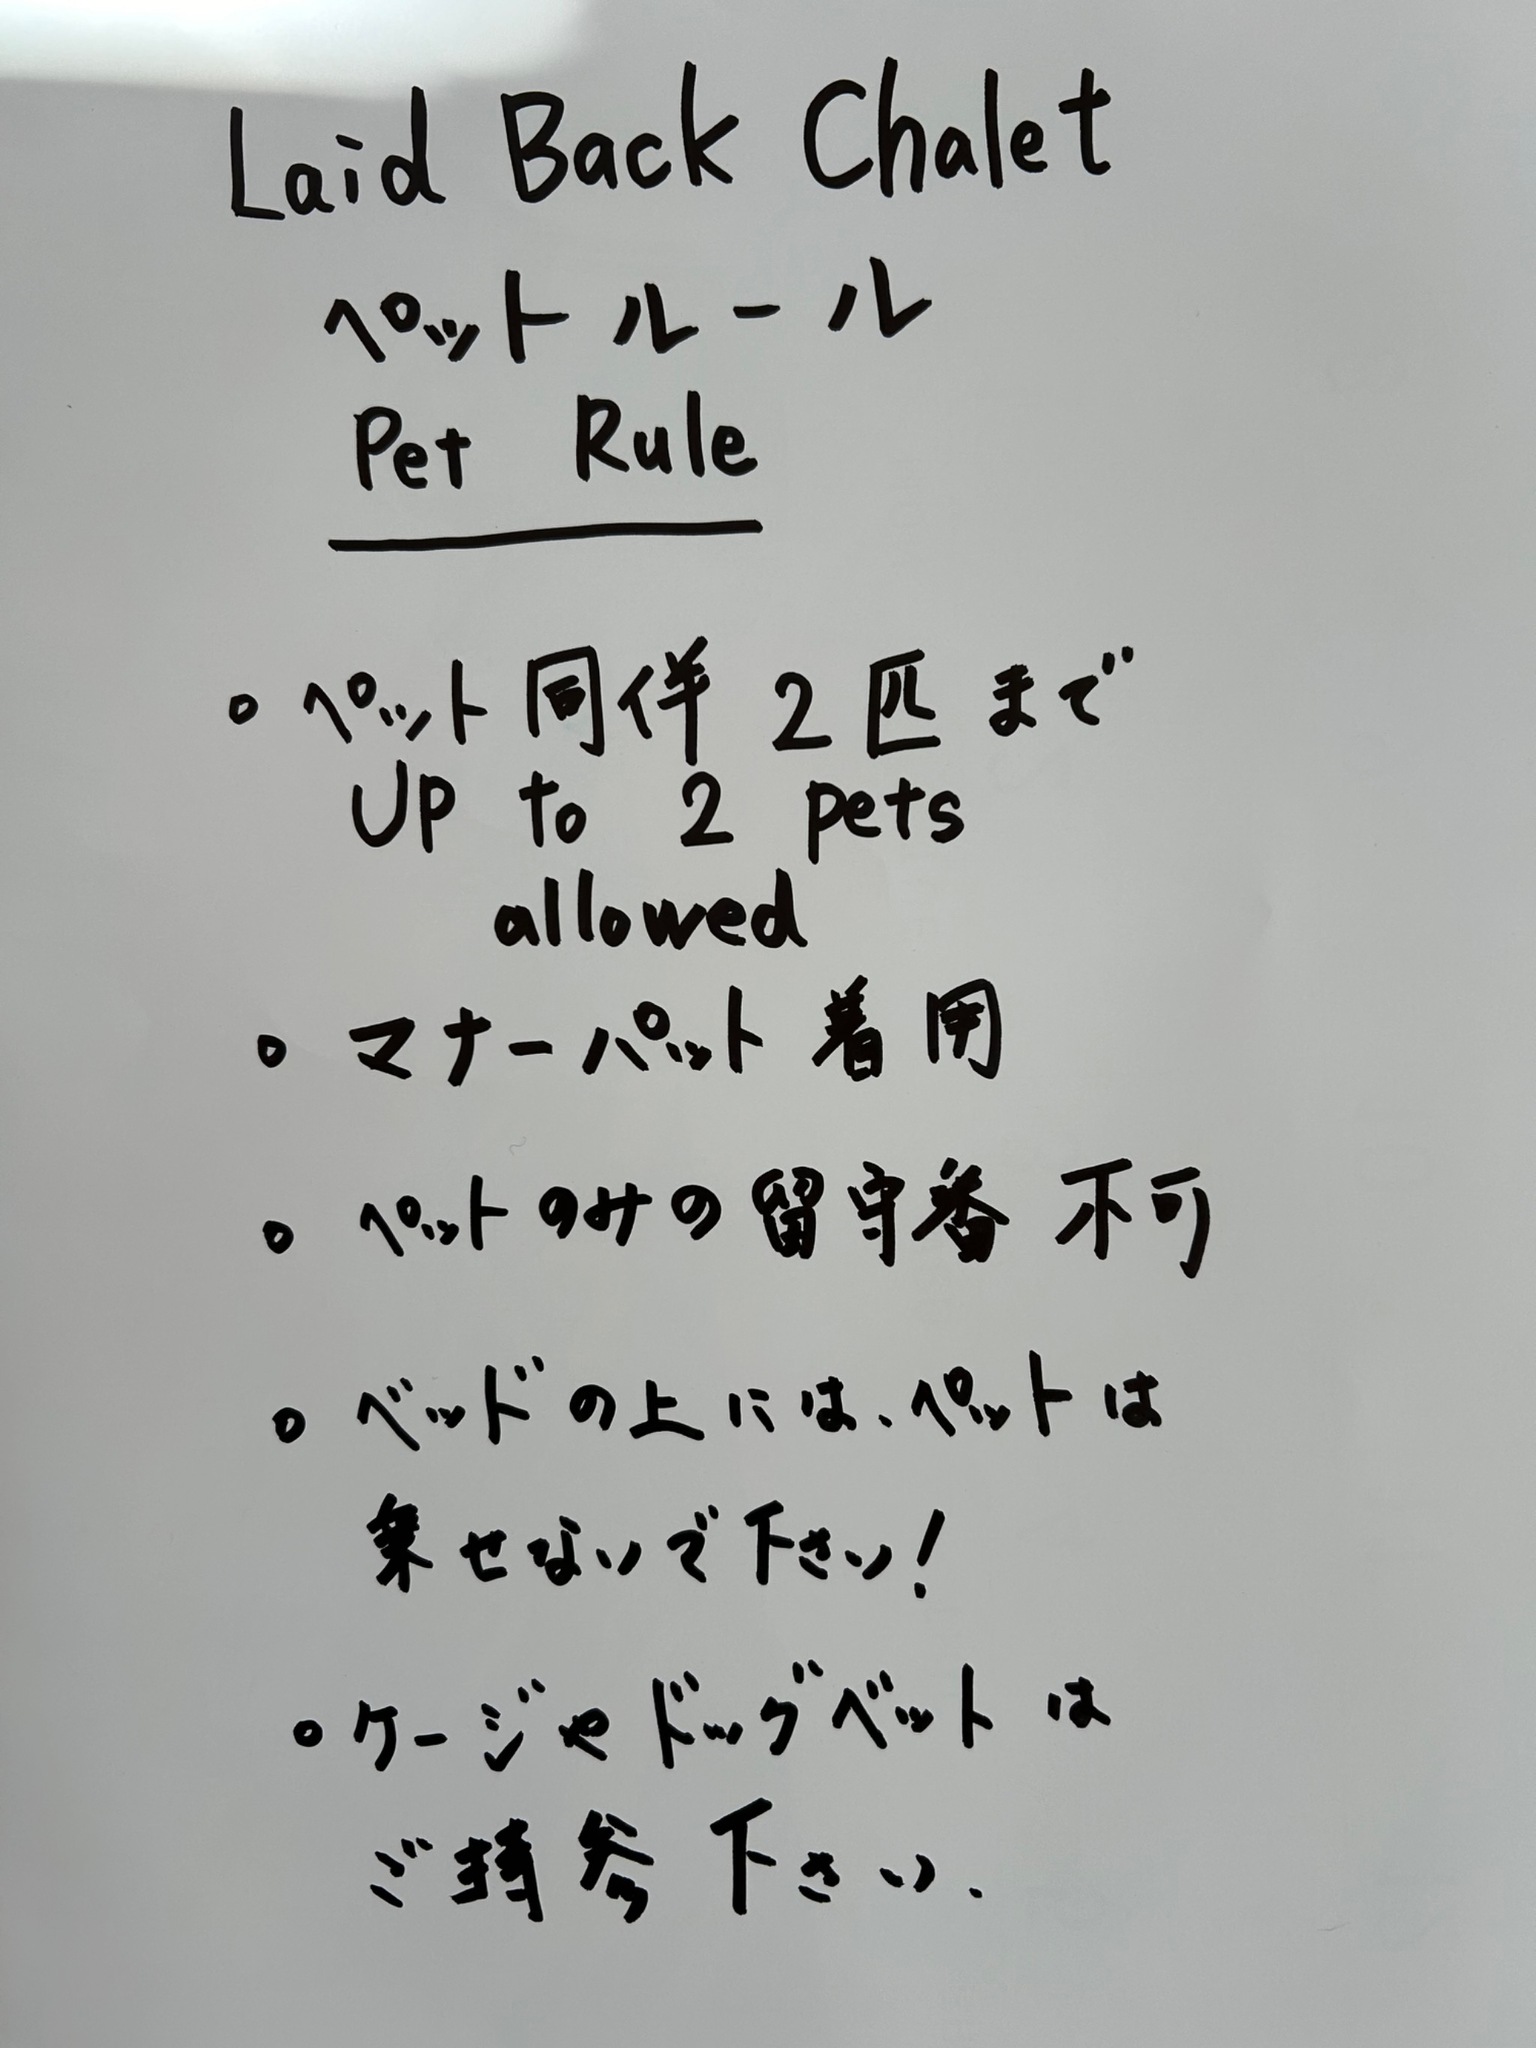 Laid Back Chalet
ペットルール
Pet Rule
• ペット同伴 2匹まで
UP to 2 pets
allowed
• マナーパット着用
• ペットのみの留守番 不可
• ベッドの上には、ペットは
乗せないで下さい!
• ケージやドッグベットは
ご持参下さい.